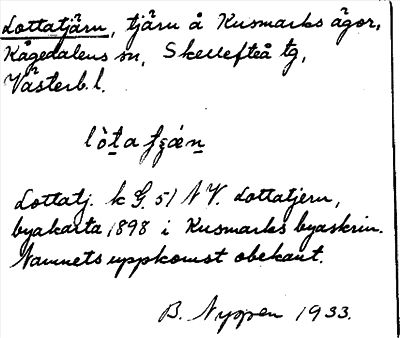 Lottatjärn, tjärn å Kusmarks ägor,
Kågedalens sn, Skellefteå tg,
Västerb. l.
Lottatj. k G. 51 N V. Lottatjern,
byakarta 1898 i Kusmarks byaskrin.
Namnets uppkomst obekant.
B. Nyppen 1933.